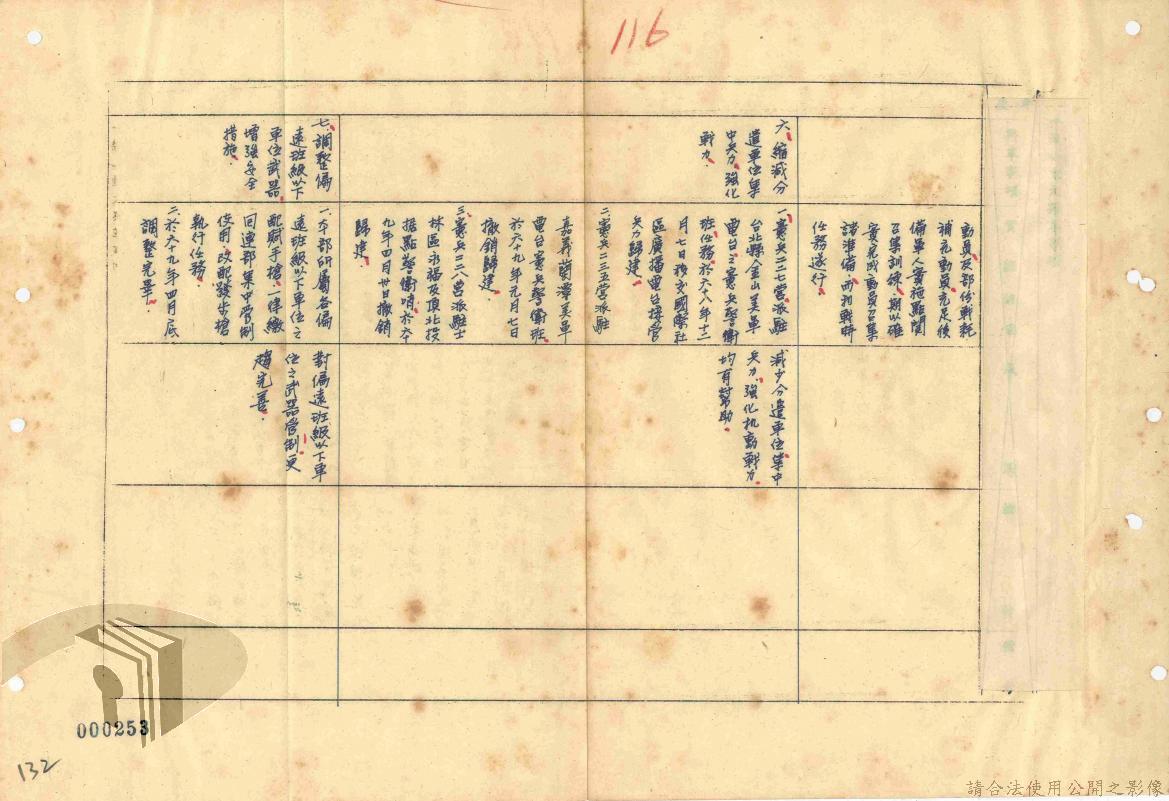 116
動員及部份戰耗
補充動員充足後
備軍人實施點閱
召集訓練、期以確
實完成動員召集
諸準備、而利戰時
任務遂行.
六、縮減分
遣單位集
中兵力、強化
戰力.
一、憲兵二二七營派駐
台北縣金山美軍
電台之憲兵警衛
班任務、於六八年十二
月七日移交國際社
區廣播電台接管
兵力歸建.
二、憲兵二三五營派駐
嘉義
電台憲兵警衛班
於六十九年元月七日
撤銷歸建.
三、憲兵二二八營派駐士
林區永福及頂北投
據點警衛哨、於六十
九年四月卅日撤銷
歸建.
減少分遣單位集中
兵力、強化机動戰力
均有幫助.
七、調整偏
遠班級以下
單位武器
增強安全
措施.
一、本部所屬各偏
遠班級以下單位之
配賦手槍、一律繳
回連部集中管制
使用、改配發步槍
執行任務.
二、於六十九年四月底
調整完畢.
對偏遠班級以下單
位之武器管制更
趨完善.
000253
132
請合法使用公開之影像